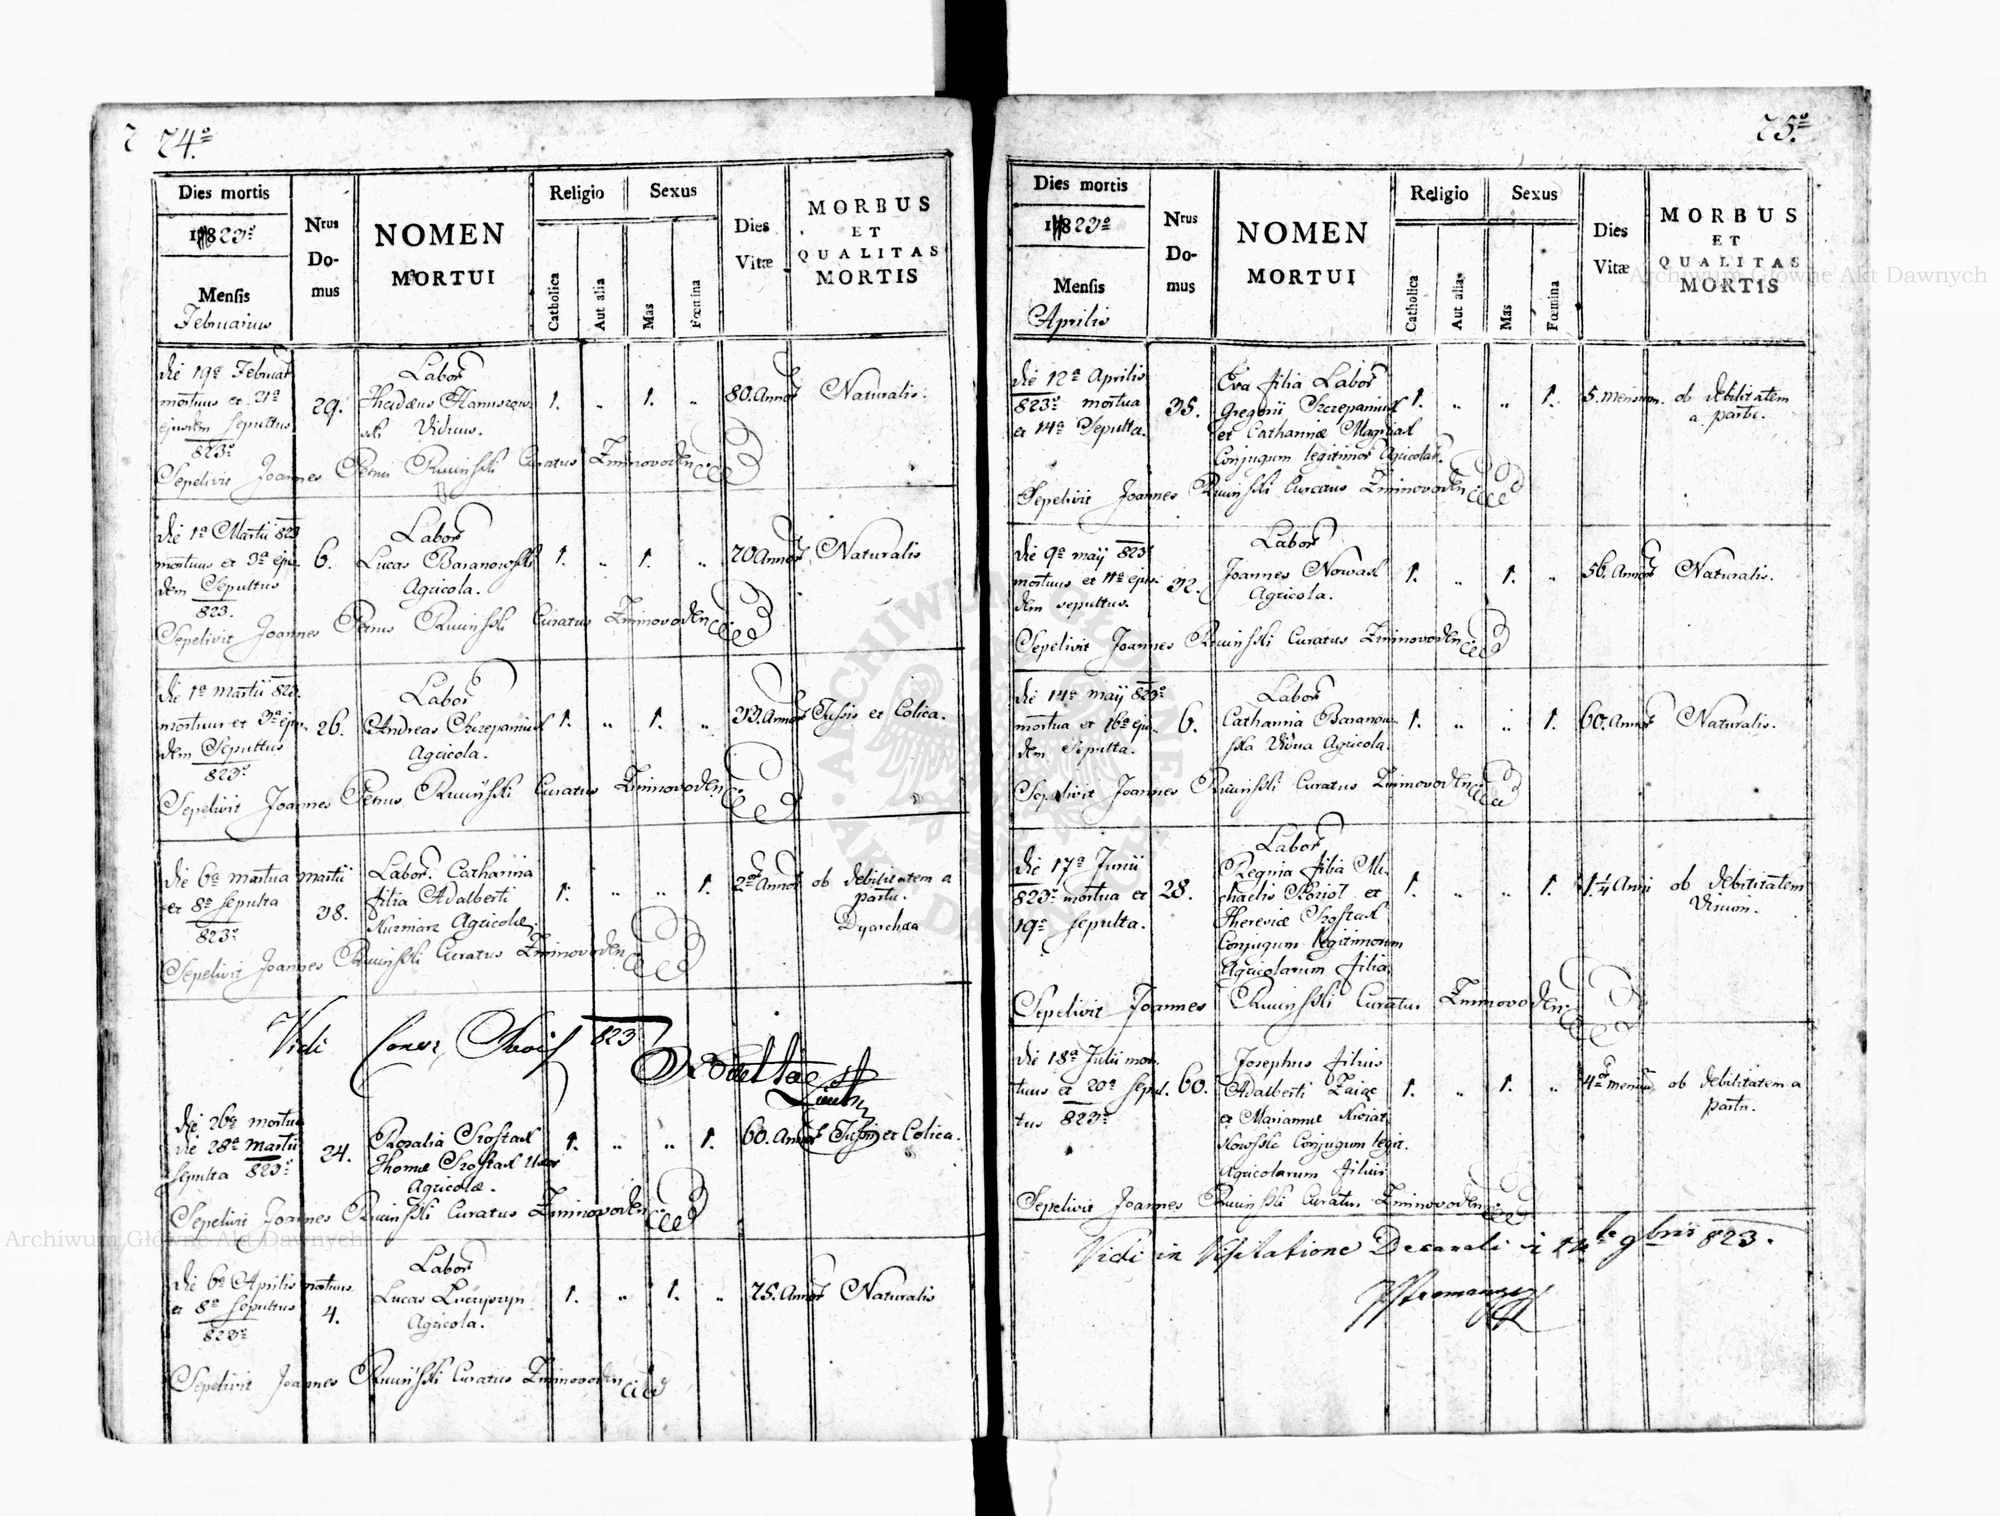 74.º
Dies mortis
1823º
Mensis
Februarius
Nrus
Do-
mus
NOMEN
MORTUI
Religio
Catholica
Aut alia
Sexus
Mas
Fœmina
Dies
Vitæ
MORBUS
ET
QUALITAS
MORTIS
die 19ª Februar
mortuus et 21ª
ejusdem Sepultus
823º
29.
Labor
Thadæus Hanuszow
ski Viduus.
1. „ 1. „
80. Annor
Naturalis.
Sepelivit Joannes Petrus Ruvinski Curatus Zminovoden
die 1ª Martii 823
mortuus et 3ª ejus
dem Sepultus
823.
6.
Labor
Lucas Baranowski
Agricola.
1. „ 1. „
70 Annor
Naturalis
Sepelivit Joannes Petrus Ruvinski Curatus Zminovoden
die 1ª martii 823.
mortuus et 3ª ejus
dem Sepultus
823º
26.
Labor
Andreas Szczepaniuk
Agricola.
1. „ 1. „
33. Annor
Tussis et Colica.
Sepelivit Joannes Petrus Ruvinski Curatus Zminovoden
die 6ª mortua martii
et 8ª sepulta
823º
38.
Labor. Catharina
filia Adalberti
Kuzmiarz Agricolæ.
1. „ „ 1.
2or Annor
ob debilitatem a
partu.
Dyarchæa
Sepelivit Joannes Ruvinski Curatus Zminovoden
Vidi 823
die 26ª mortua
die 28ª Martii
sepulta 823º
24.
Rosalia Szostak
Thomæ Szostak Uxor
Agricolæ.
1. „ „ 1.
60. Annor
Tussis et Colica.
Sepelivit Joannes Ruvinski Curatus Zminovoden
die 6ª Aprilis mortuus
et 8ª sepultus
823º
4.
Labor
Lucas
Agricola.
1. „ 1. „
75. Annor
Naturalis
Sepelivit Joannes Ruvinski Curatus Zminovoden
75.º
Dies mortis
1823º
Mensis
Aprilis
Nrus
Do-
mus
NOMEN
MORTUI
Religio
Catholica
Aut alia
Sexus
Mas
Fœmina
Dies
Vitæ
MORBUS
ET
QUALITAS
MORTIS
die 12ª Aprilis
823º mortua
et 14ª Sepulta.
35.
Eva filia Labor
Gregorii Szczepaniuk
et Catharinæ
Conjugum legitimor Agricolar.
1. „ „ 1.
5. mensium.
ob debilitatem
a partu.
Sepelivit Joannes Ruvinski Curatus Zminovoden
die 9ª maij 823º
mortuus et 11ª ejus-
dem sepultus.
32.
Labor
Joannes Nowak
Agricola.
1. „ 1. „
56. Annor
Naturalis.
Sepelivit Joannes Ruvinski Curatus Zminovoden
die 14ª maij 823º
mortua et 16ª ejus-
dem Sepulta.
6.
Labor
Catharina Baranow-
ska Vidua Agricola.
1. „ „ 1.
60. Annor
Naturalis.
Sepelivit Joannes Ruvinski Curatus Zminovoden
die 17ª Junii
823º mortua et
19ª sepulta.
28.
Labor
Regina filia Mi-
chaelis Koziol et
Theresiæ Szostak
Conjugum legitimorum
Agricolarum filia
1. „ „ 1.
1 1/4 Anni
ob debilitatem
Virium.
Sepelivit Joannes Ruvinski Curatus Zminovoden
die 18ª Julii mor-
tuus et 20ª sepul.
tus 823º
60.
Josephus filius
Adalberti Zaiac
et Mariannæ Kwiat-
kowskie Conjugum legit.
Agricolarum filius
1. „ 1. „
4or mensium
ob debilitatem a
partu.
Sepelivit Joannes Ruvinski Curatus Zminovoden
Vidi in Visitatione Decanali 9bris 823.
Archiwum Główne Akt Dawnych
Archiwum Główne Akt Dawnych
ARCHIWUM GŁÓWNE AKT DAWNYCH